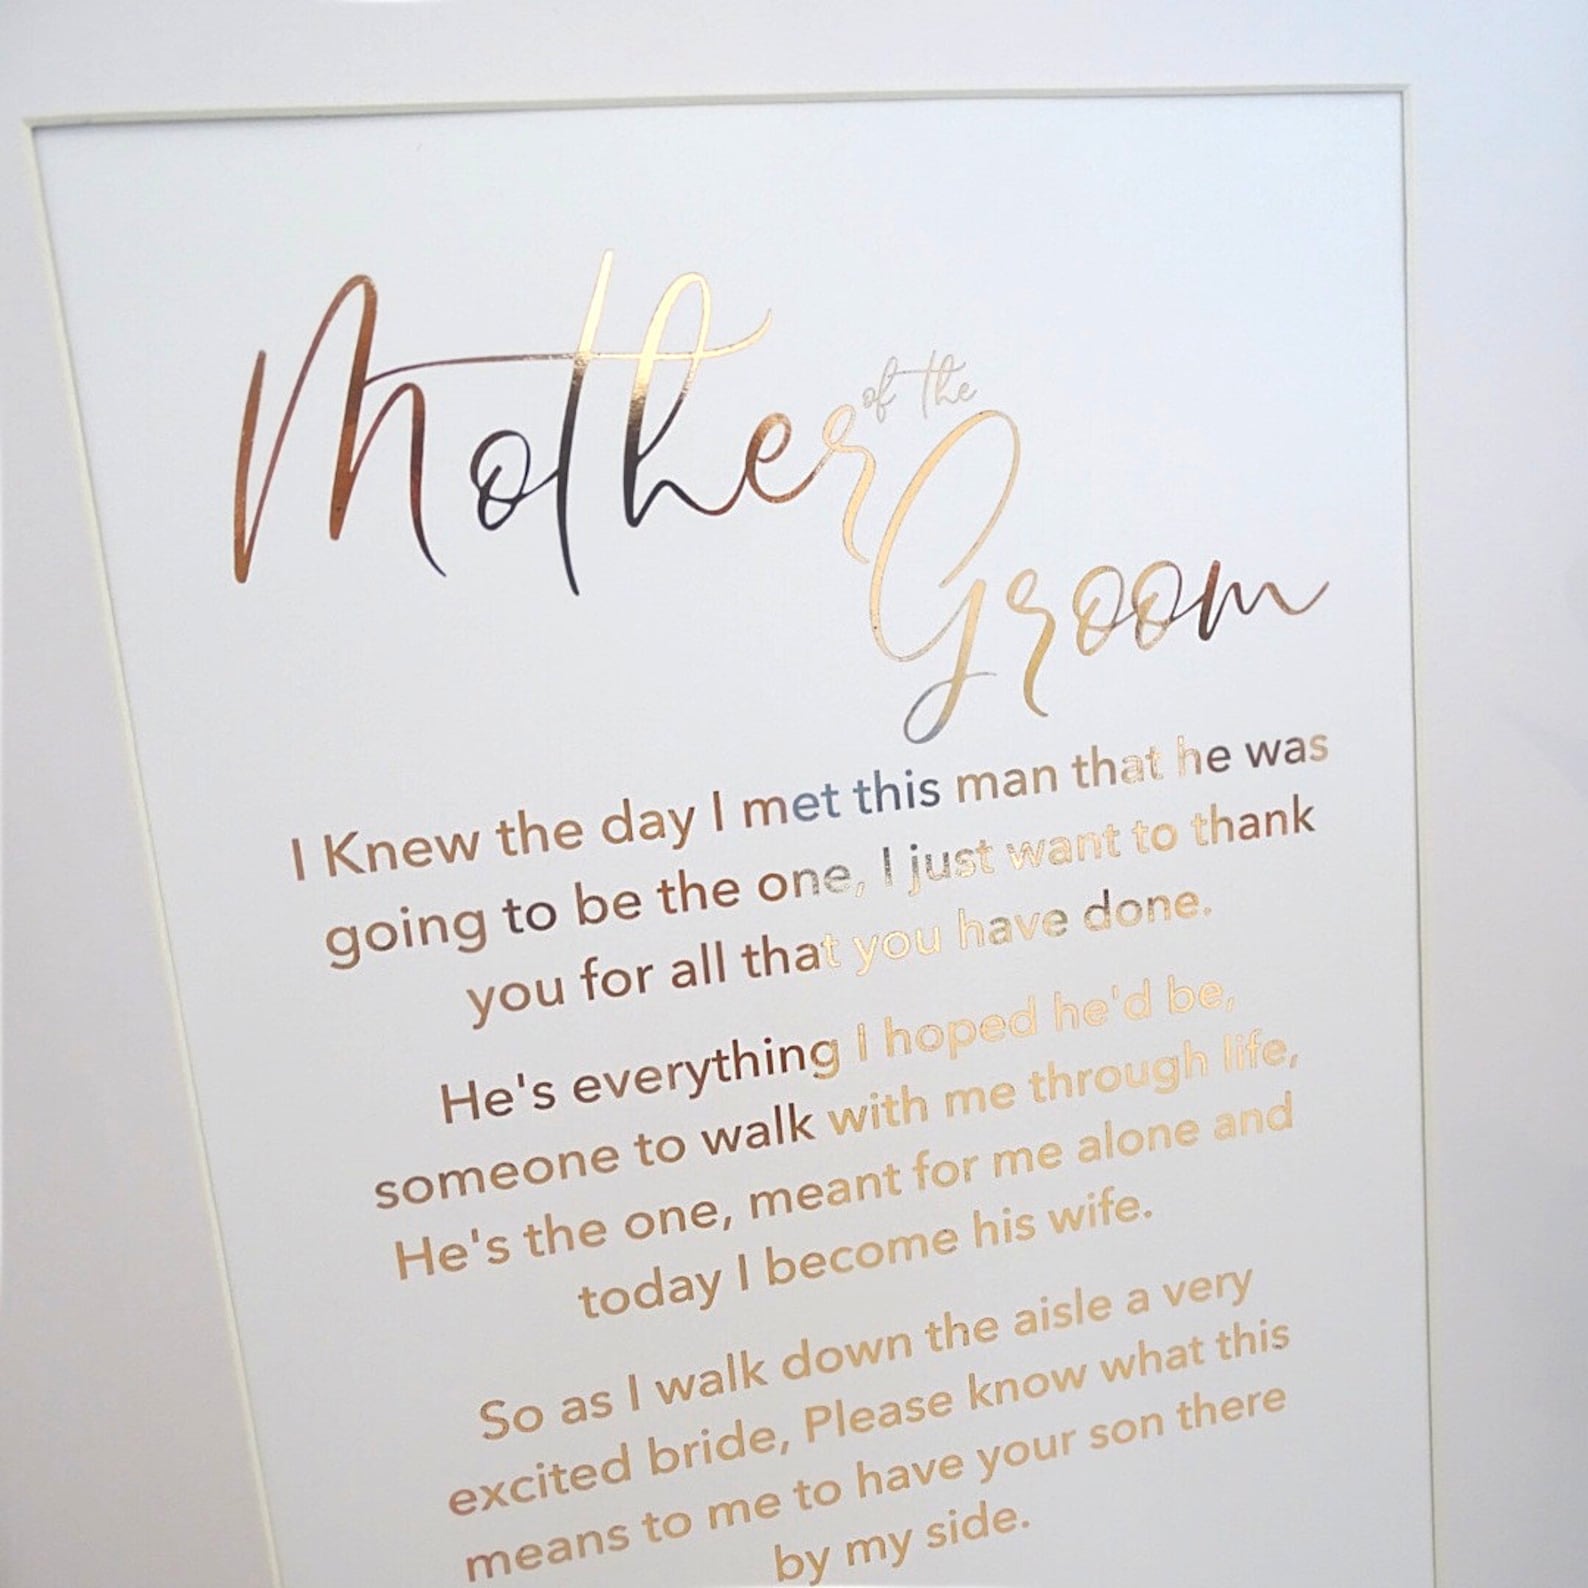 Mother
of the
Groom
I Knew the day I met this man that he was
going to be the one, I just want to thank
you for all that you have done.
He's everything I hoped he'd be,
someone to walk with me through life,
He's the one, meant for me alone and
today I become his wife.
So as I walk down the aisle a very
excited bride, Please know what this
means to me to have your son there
by my side.